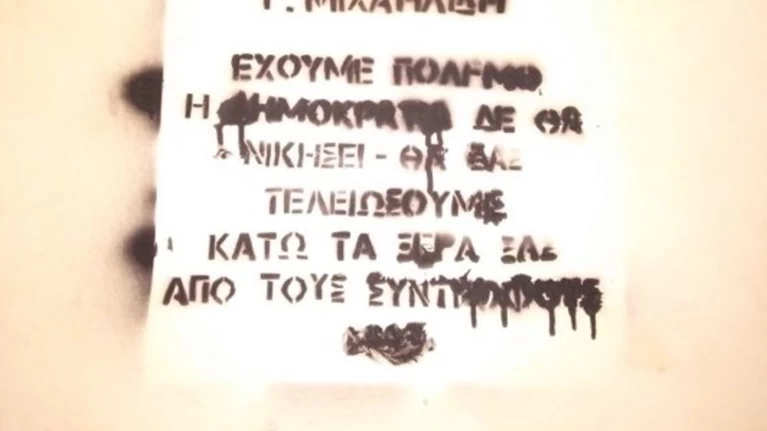 Γ. ΜΙΧΑΗΛΙΔΗ
ΕΧΟΥΜΕ ΠΟΛΕΜΟ
Η ΔΗΜΟΚΡΑΤΙΑ ΔΕ ΘΑ
ΝΙΚΗΣΕΙ - ΘΑ ΣΑΣ
ΤΕΛΕΙΩΣΟΥΜΕ
ΚΑΤΩ ΤΑ ΞΕΡΑ ΣΑΣ
ΑΠΟ ΤΟΥΣ ΣΥΝΤΡΟΦΟΥΣ
ΜΑΣ